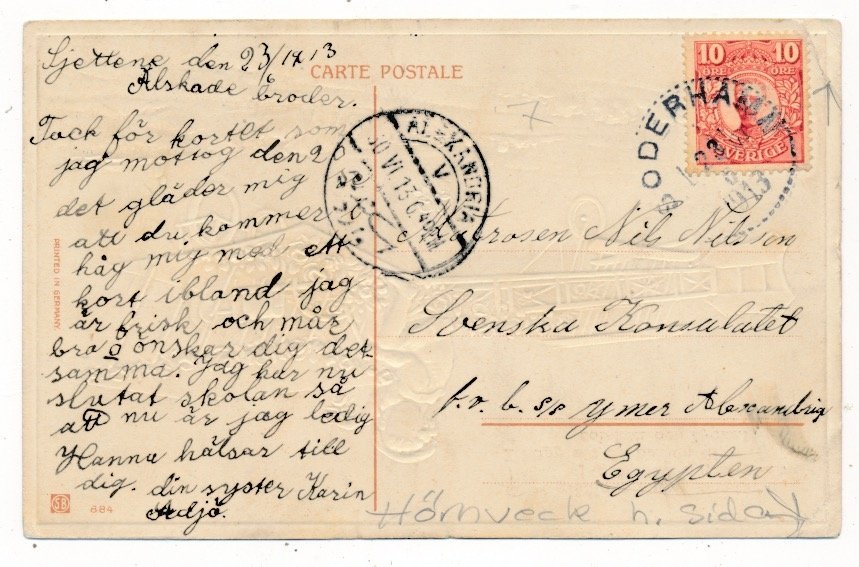 Sjettene den 23/4 13
Älskade broder.
Tack för kortet som
jag mottog den 20
det gläder mig
att du kommer i
håg mig med ett
kort ibland jag
är frisk och mår
bra o önskar dig det-
samma. Jag har nu
slutat skolan så
att nu är jag ledig
Hanna hälsar till
dig. din syster Karin
Adjö.
CARTE POSTALE
PRINTED IN GERMANY
SB
684
ALEXANDRIA
V
VI 13
10 ÖRE 10 ÖRE
SVERIGE
SÖDERHAMN
1913
7
Matrosen Nils Nilsson
Svenska Konsulatet
f.v.b. s/s Ymer Alexandria
Egypten
Hörnveck h. sida